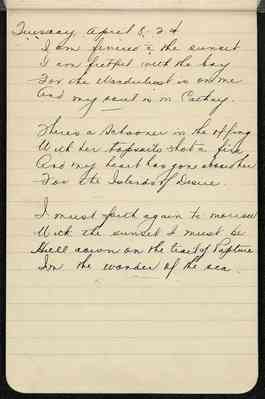 Tuesday, April 8, 24
I am fevered with the sunset
I am fretful with the bay
For the Wanderlust is on me
And my soul is in Cathay.
There's a Schooner in the offing
With her topsails shot a fire
And my heart has gone aboard her
For the Islands of Desire.
I must forth again to morrow
With the sunset I must be
Hull down on the trail of Rapture
In the wonder of the sea.